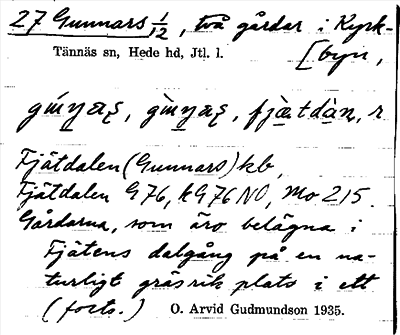 27 Gunnars 1/12, två gårdar i Kyrk-
[byn,
Tännäs sn, Hede hd, Jtl. l.
Fjätdalen (Gunnars) kb,
Fjätdalen G76, kG76NO, Mo 215.
Gårdarna, som äro belägna i
Fjätens dalgång på en na-
turligt gräsrik plats i ett
(forts.) O. Arvid Gudmundson 1935.